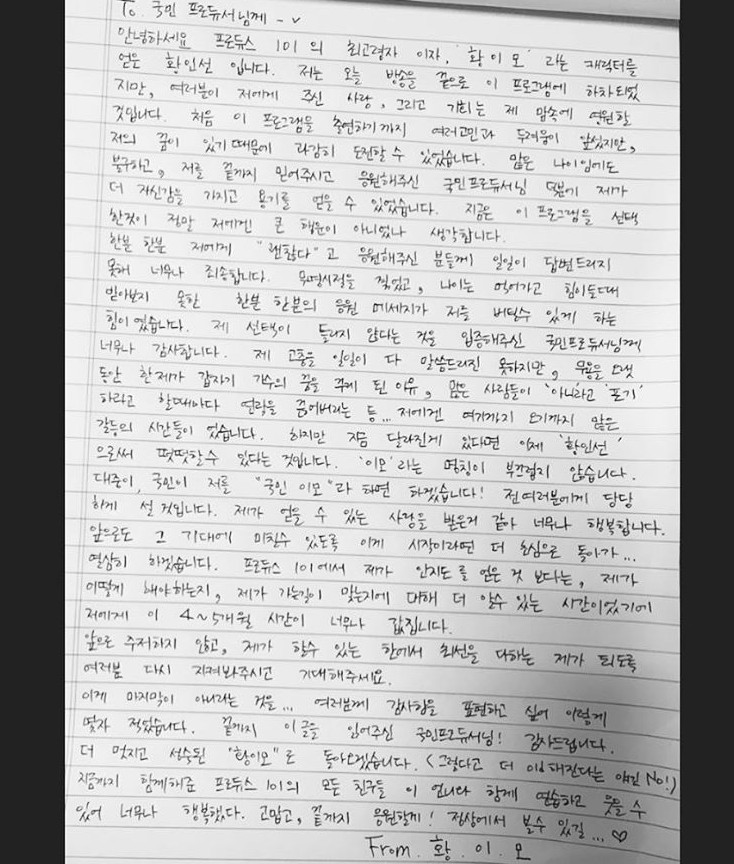 To. 국민 프로듀서님께 -✓
안녕하세요 프로듀스 101의 최고령자 이자, '황이모' 라는 캐릭터를
얻은 황인선 입니다. 저는 오늘 방송을 끝으로 이 프로그램에 하차되었
지만, 여러분이 저에게 주신 사랑, 그리고 기회는 제 맘속에 영원할
것입니다. 처음 이 프로그램을 출연하기까지 여러고민과 두려움이 앞섰지만,
저의 꿈이 있기때문에 과감히 도전할 수 있었습니다. 많은 나이임에도
불구하고, 저를 끝까지 믿어주시고 응원해주신 국민프로듀서님 덕분에 제가
더 자신감을 가지고 용기를 얻을 수 있었습니다. 지금은 이 프로그램을 선택
한것이 정말 저에겐 큰 행운이 아니었나 생각합니다.
한분 한분 저에게 "괜찮다"고 응원해주신 분들께 일일이 답변드리지
못해 너무나 죄송합니다. 무명시절을 겪었고, 나이는 먹어가고 힘이들때
받아보지 못한 한분 한분의 응원 메세지가 저를 버틸수 있게 하는
힘이었습니다. 제 선택이 틀리지 않다는 것을 입증해주신 국민프로듀서님께
너무나 감사합니다. 제 고충을 일일이 다 말씀드리진 못하지만, 무용을 오랫
동안 한제가 갑자기 가수의 꿈을 꾸게 된 이유, 많은 사람들이 '아니라고' '포기'
하라고 할때마다 연락을 끊어버리는 등... 저에겐 여기까지 오기까지 많은
갈등의 시간들이 었습니다. 하지만 지금 달라진게 있다면 이제 '황인선'
으로써 떳떳할수 있다는 것입니다. '이모'라는 명칭이 부끄럽지 않습니다.
대중이, 국민이 저를 "국민 이모"라 하면 하겠습니다! 전여러분에게 당당
하게 설 것입니다. 제가 얻을 수 있는 사랑을 받은거 같아 너무나 행복합니다.
앞으로도 그 기대에 미칠수 있도록 이게 시작이라면 더 초심으로 돌아가...
열심히 하겠습니다. 프로듀스 101에서 제가 인지도를 얻은 것 보다는, 제가
어떻게 해야하는지, 제가 가는길이 맞는지에 대해 더 알수 있는 시간이었기에
저에게 이 4~5개월 시간이 너무나 값집니다.
앞으로 주저하지 않고, 제가 할수 있는 한에서 최선을 다하는 제가 되도록
여러분 다시 지켜봐주시고 기대해주세요.
이게 마지막이 아니라는 것을... 여러분께 감사함을 표현하고 싶어 이렇게
몇자 적었습니다. 끝까지 이글을 읽어주신 국민프로듀서님! 감사드립니다.
더 멋지고 성숙된 "황이모"로 돌아오겠습니다. (그렇다고 더 이모해진다는 얘긴 No!)
지금까지 함께해준 프로듀스101의 모든 친구들 이 언니와 함께 연습하고 웃을 수
있어 너무나 행복했다. 고맙고, 끝까지 응원할게! 정상에서 볼수 있길...♡
From. 황.이.모